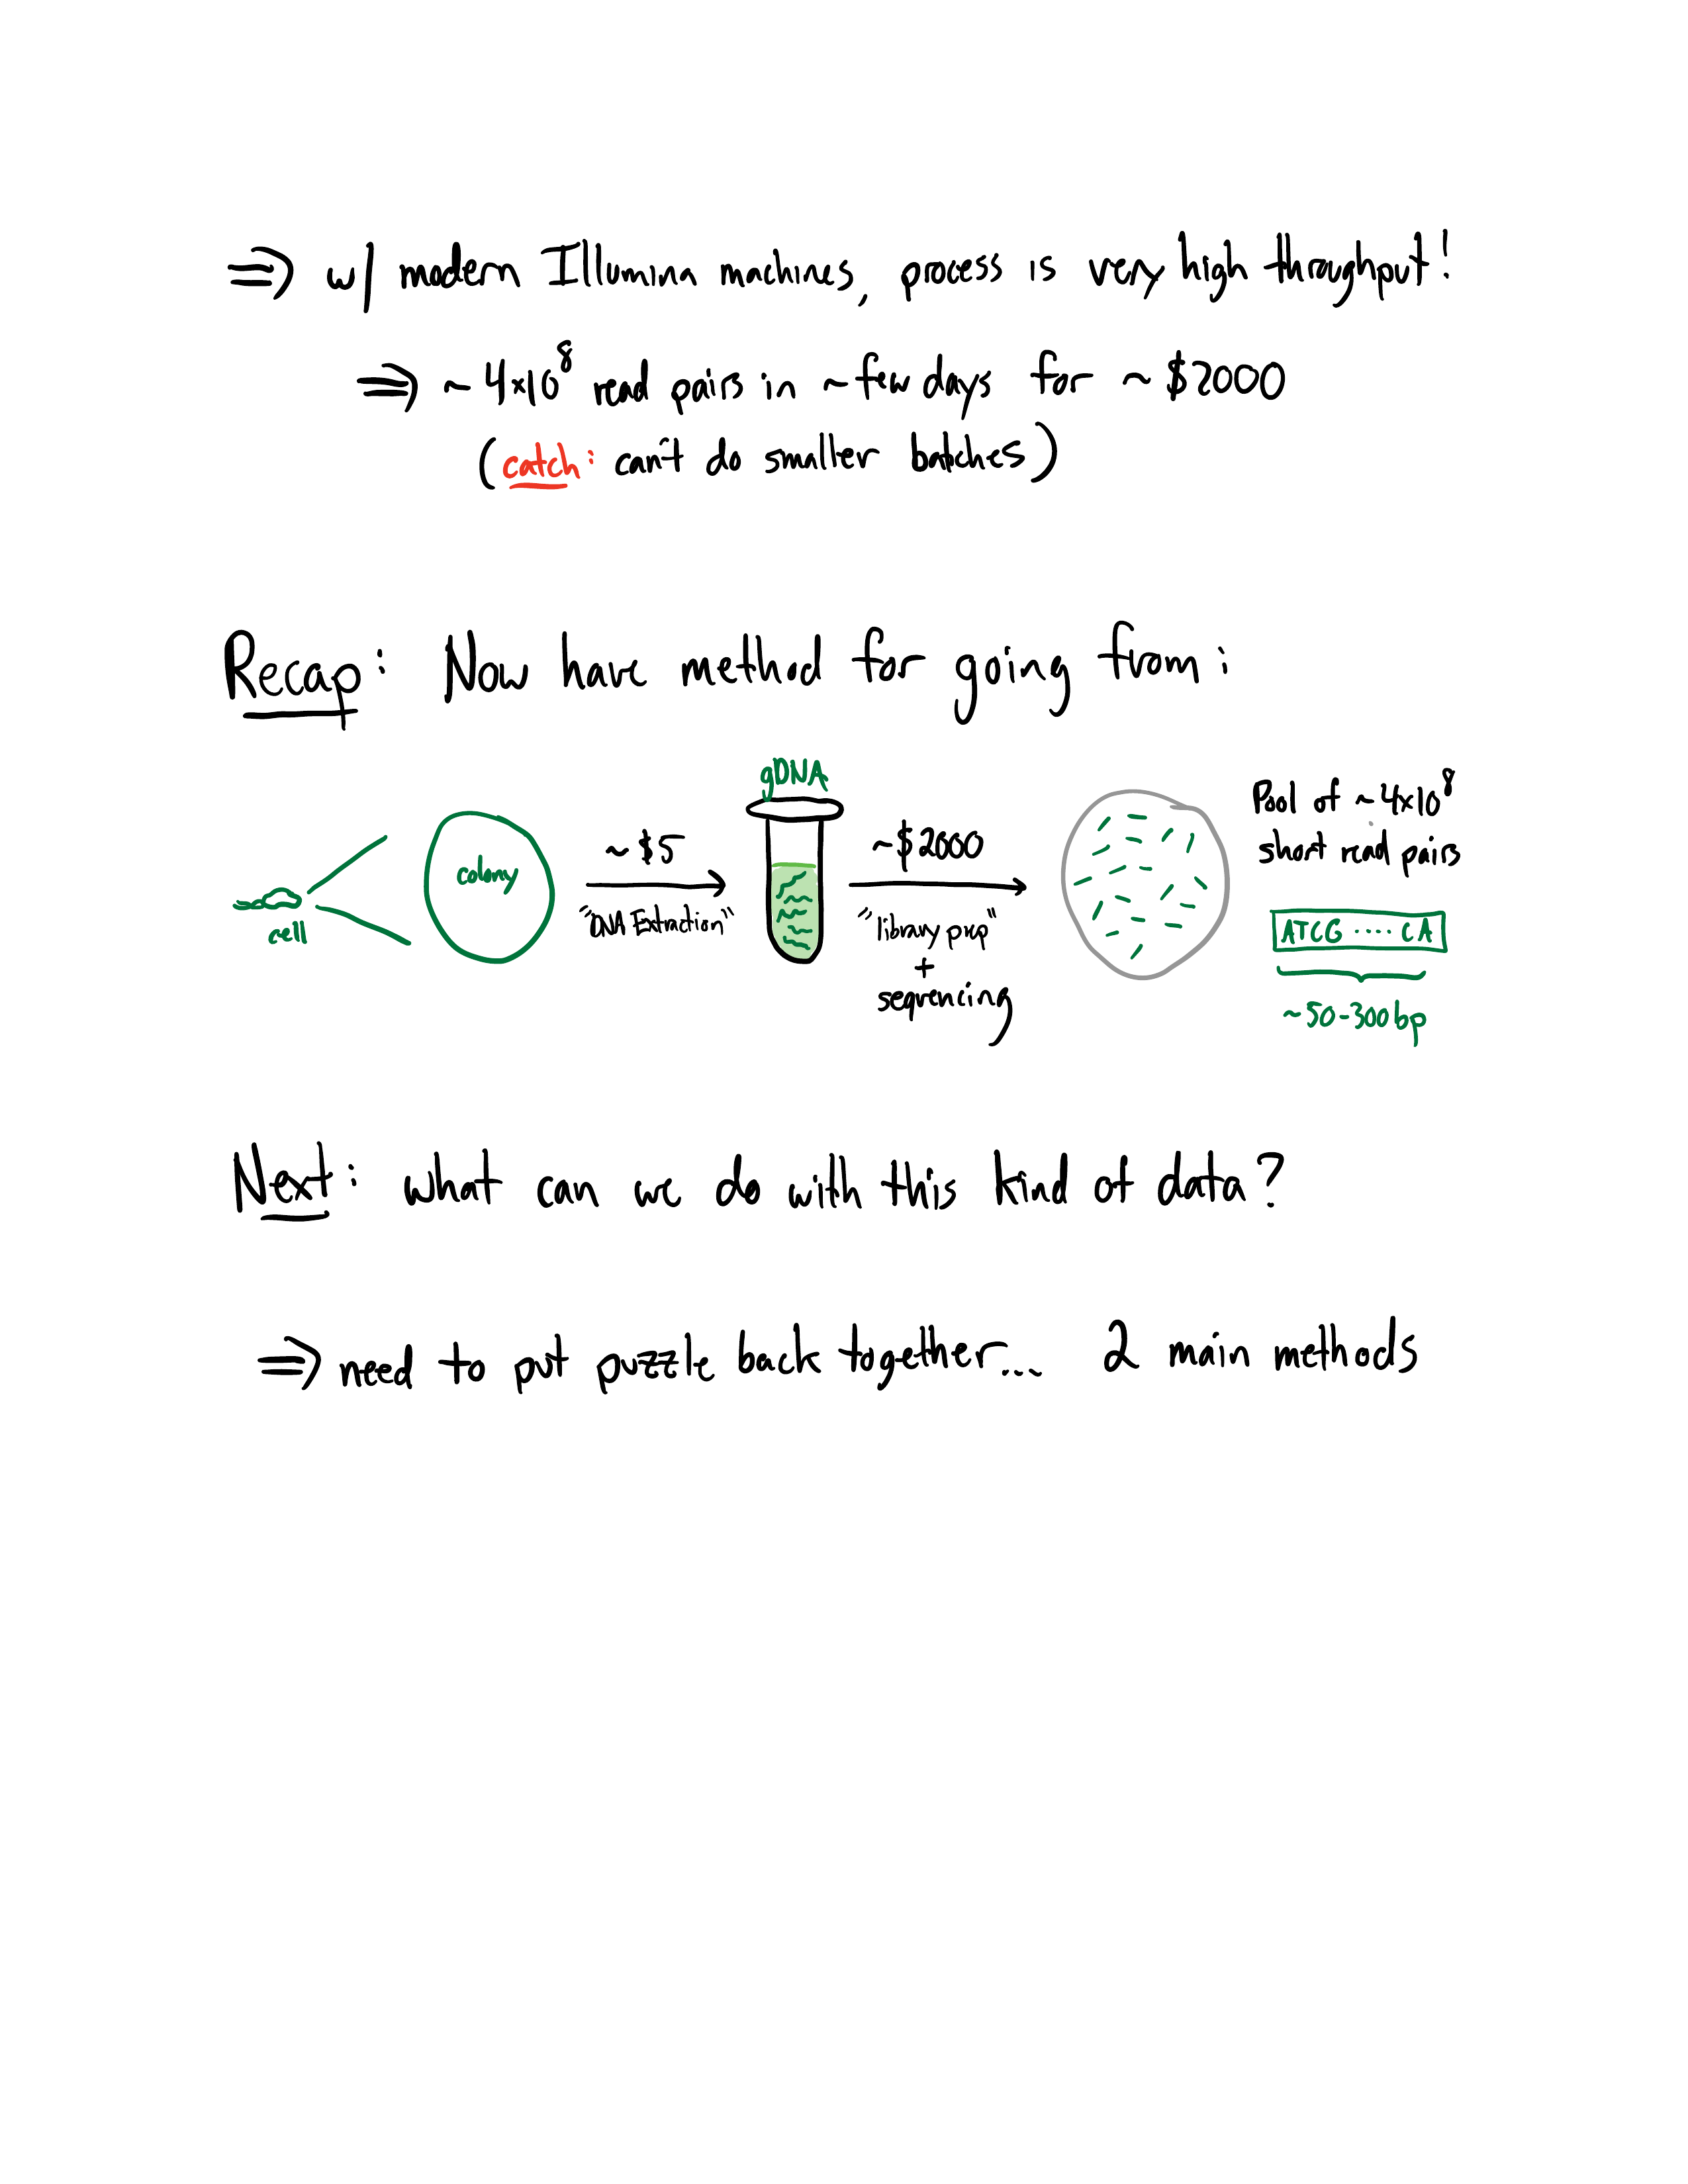 ⇒ w/ modern Illumina machines, process is very high throughput!
⇒ ~4×10⁸ read pairs in ~few days for ~$2000
(catch: can't do smaller batches)
Recap: Now have method for going from:
cell
colony
~$5
"DNA Extraction"
gDNA
~$2000
"library prep"
+
sequencing
Pool of ~4×10⁸
short read pairs
ATCG ···· CA
~50-300bp
Next: what can we do with this kind of data?
⇒ need to put puzzle back together... 2 main methods